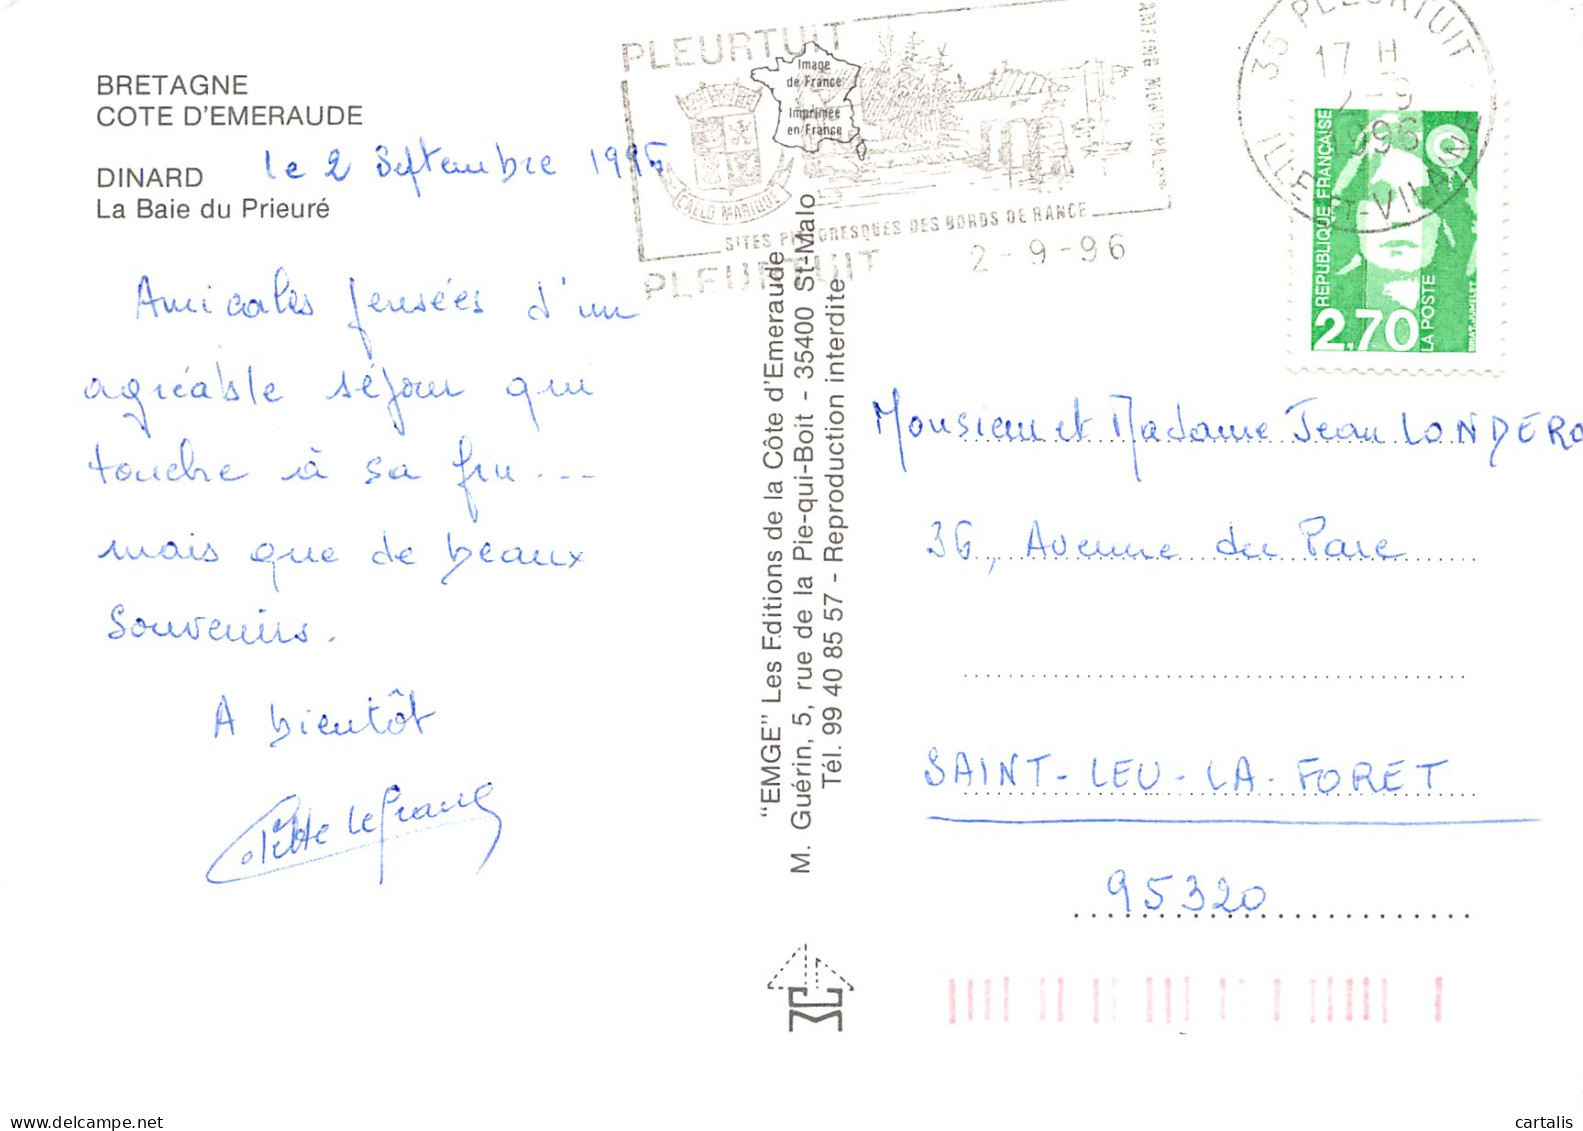 BRETAGNE
COTE D'EMERAUDE
DINARD
La Baie du Prieuré
le 2 Septembre 1996
Amicales pensées d'un
agréable séjour qui
touche à sa fin...
mais que de beaux
souvenirs.
A bientôt
Lefranc
PLEURTUIT
Image
de France
Imprimée
en France
CAELO MARIQUE
SITES PITTORESQUES DES BORDS DE RANCE
PLEURTUIT
2-9-96
35 PLEURTUIT
17 H
2-9
1996
ILLE-ET-VILAINE
REPUBLIQUE FRANÇAISE
2,70
LA POSTE
"EMGE" Les Editions de la Côte d'Emeraude
M. Guérin, 5, rue de la Pie-qui-Boit - 35400 St-Malo
Tél. 99 40 85 57 - Reproduction interdite
Monsieur et Madame Jean LONDERO
36, Avenue du Parc
SAINT-LEU-LA-FORET
95320
delcampe.net
cartalis